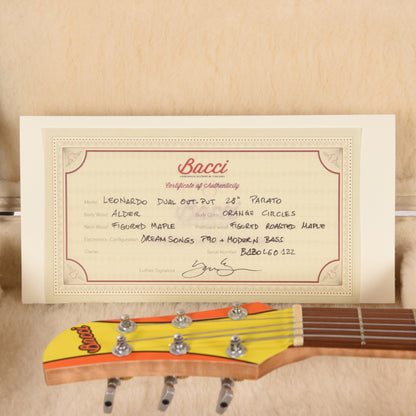 Bacci
Certificate of Authenticity
Model LEONARDO DUAL OUTPUT 28" PARATO
Body Wood ALDER Body Color ORANGE CIRCLES
Neck Wood FIGURED MAPLE Fretboard Wood FIGURED ROASTED MAPLE
Electronics Configuration DREAMSONGS P90 + MODERN BASS
Owner Serial Number
Luthier Signature
Bacci